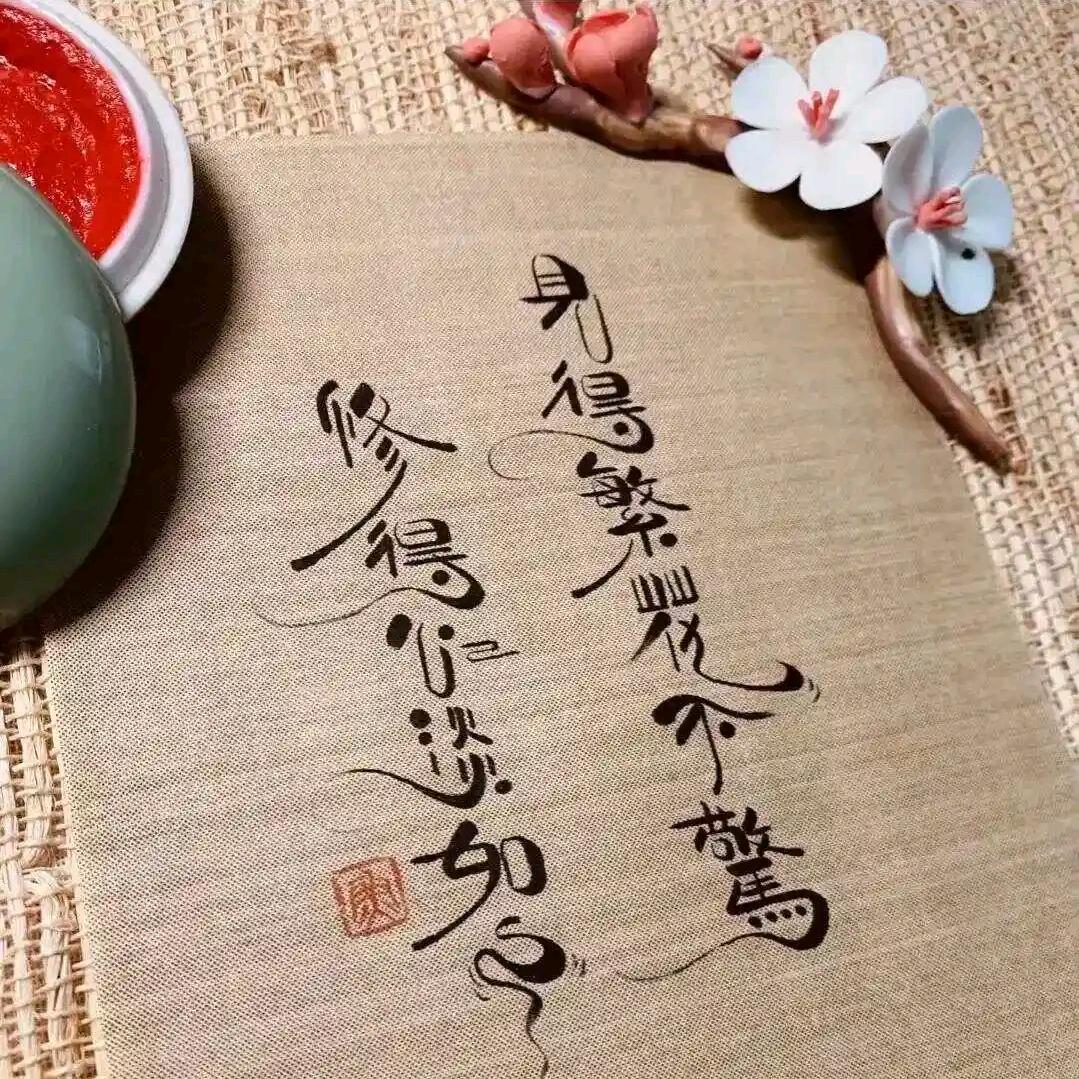 見得繁花不驚
修得心淡如云